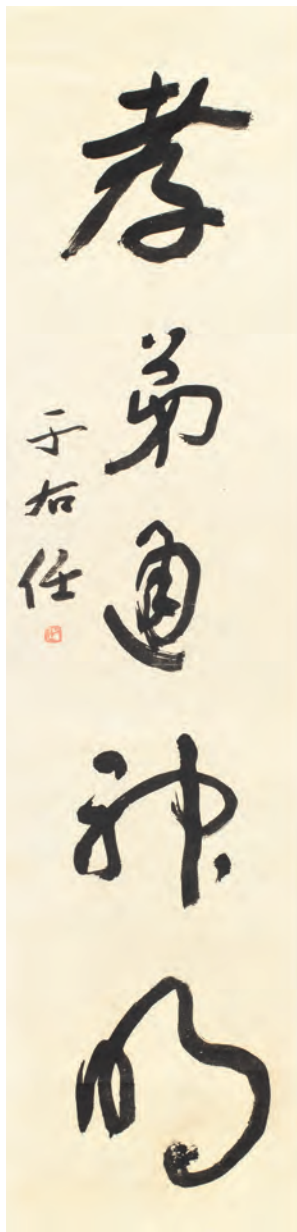 孝弟通神明
于右任